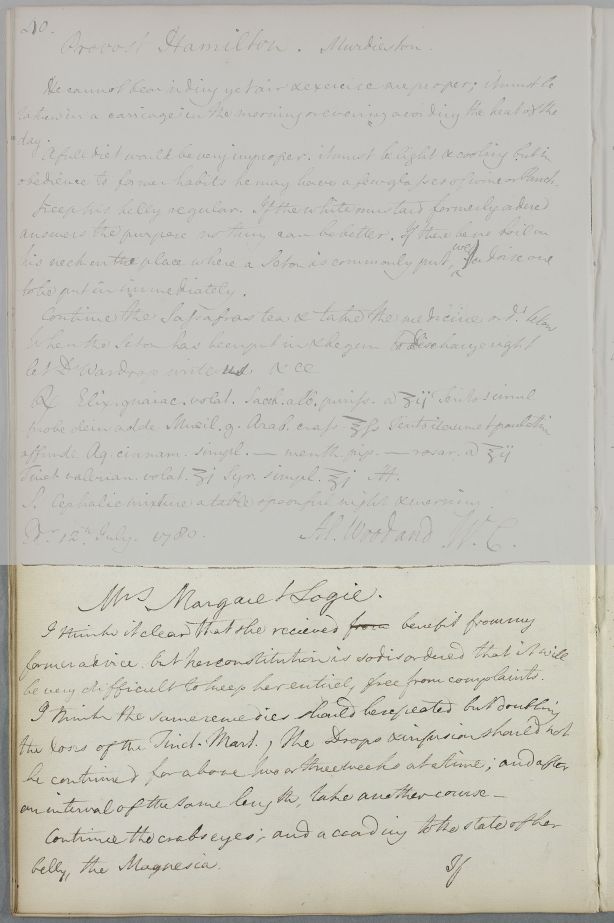 210.
Provost Hamilton. Murdieston.
He cannot bear riding yet air & exercise are proper; it must be
taken in a carriage in the morning or evening avoiding the heat of the
day.
A full diet would be very improper. it must be light & cooling but in
obedience to former habits he may have a few glasses of wine or Punch.
Keep his belly regular. If the white mustard formerly advised
answers the purpose nothing can be better. If there be no boil on
his neck in the place where a Seton is commonly put, we advise one
to be put in immediately.
Continue the Sassafras tea & take the medicine as d.d below
When the Seton has been put in & begun to discharge right
let Dr Wardrop write us &cc
Rx Elix. guaiac. volat. Sacch. alb. puriss. a ʒij Terito simul
probe dein adde Mucil. g. Arab. crass. ℥ß Terito iterum et paulatim
affunde Aq. cinnam. simpl. — menth. pip. — rosar. a ℥ij
Tinct. valerian. volat. ℥j Syr. simpl. ℥j M.
S. Cephalic mixture a table spoonful night & morning.
Edr. 12th July. 1780. Al. Wood and W. C.
Mrs Margaret Logie.
I think it clear that she recieved from benefit from my
former advice. but her constitution is so disordered that it will
be very difficult to keep her entirely free from complaints.
I think the same remedies should be repeated but doubling
the doses of the Tinct. Mart., The Drops & infusion should not
be continued for above two or three weeks at a time; and after
an interval of the same length, take another course —
Continue the crabs eyes; and according to the state of her
belly, the Magnesia.
If